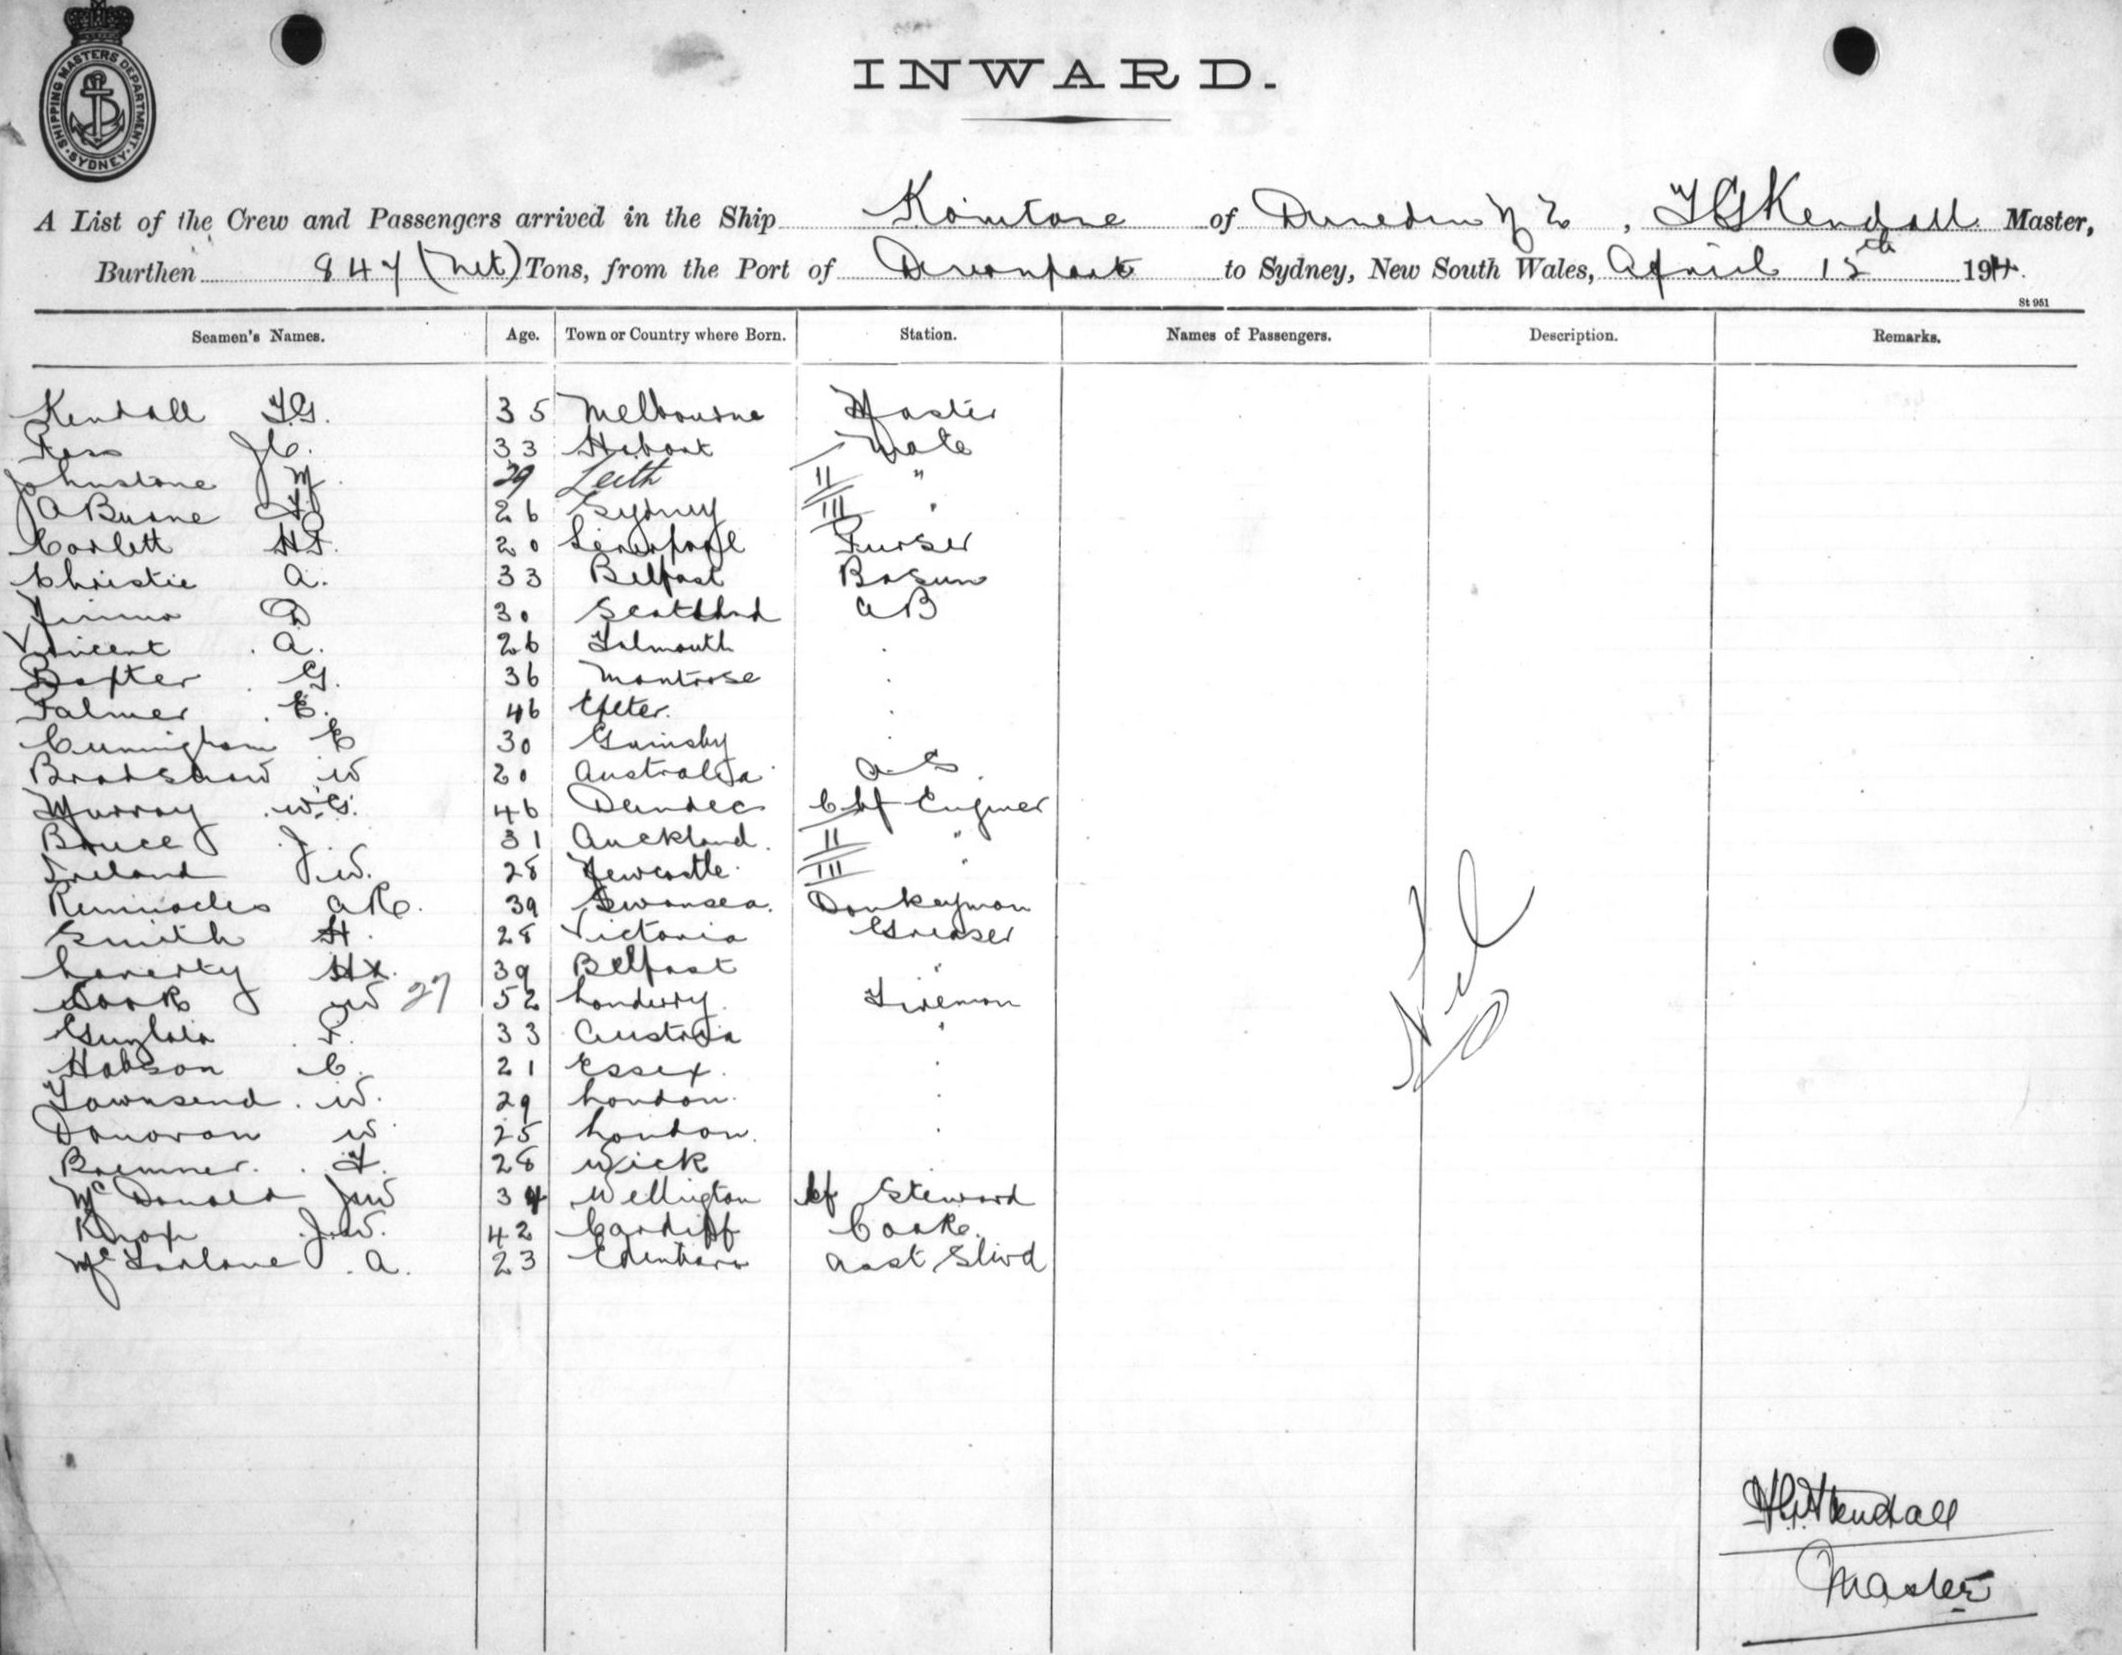 SHIPPING MASTERS DEPARTMENT · SYDNEY ·
INWARD.
A List of the Crew and Passengers arrived in the Ship of Dunedin NZ, FG Kendall Master,
Burthen 847 (Net) Tons, from the Port of Devonport to Sydney, New South Wales, April 15th 1914.
St 951
Seamen's Names. Age. Town or Country where Born. Station. Names of Passengers. Description. Remarks.
Kendall F.G. 35 Melbourne Master
Ross J C. 33 Hobart Mate
Johnstone J M. 29 Leith II "
26 Sydney III "
Corlett H F. 20 Liverpool Purser
Christie A. 33 Belfast Bosun
D 30 Scotland AB
Vincent A. 26 Falmouth "
Baxter G. 36 Montrose "
Palmer E. 46 Exeter. "
Cunningham E 30 "
Bradshaw W 20 Australia
Murray W.G. 46 Dundee Chf Enginer
Bruce J. 31 Auckland. II "
Ireland J.W. 28 Newcastle. III "
A R. 39 Swansea. Donkeyman
Smith H. 28 Victoria Greaser
Laverty H 39 Belfast "
Cook W 27 52 Londerry Fireman
P. 33 Austria "
Hobson C. 21 Essex. "
Townsend. W. 29 London. "
Donovan W 25 London. "
Bremner. F. 28 Wick
McDonald J W 34 Wellington Cf Steward
Knox J.W. 42 Cardiff Cook.
McFarlane A. 23 Asst Stwd
Nil
F.G. Kendall
Master